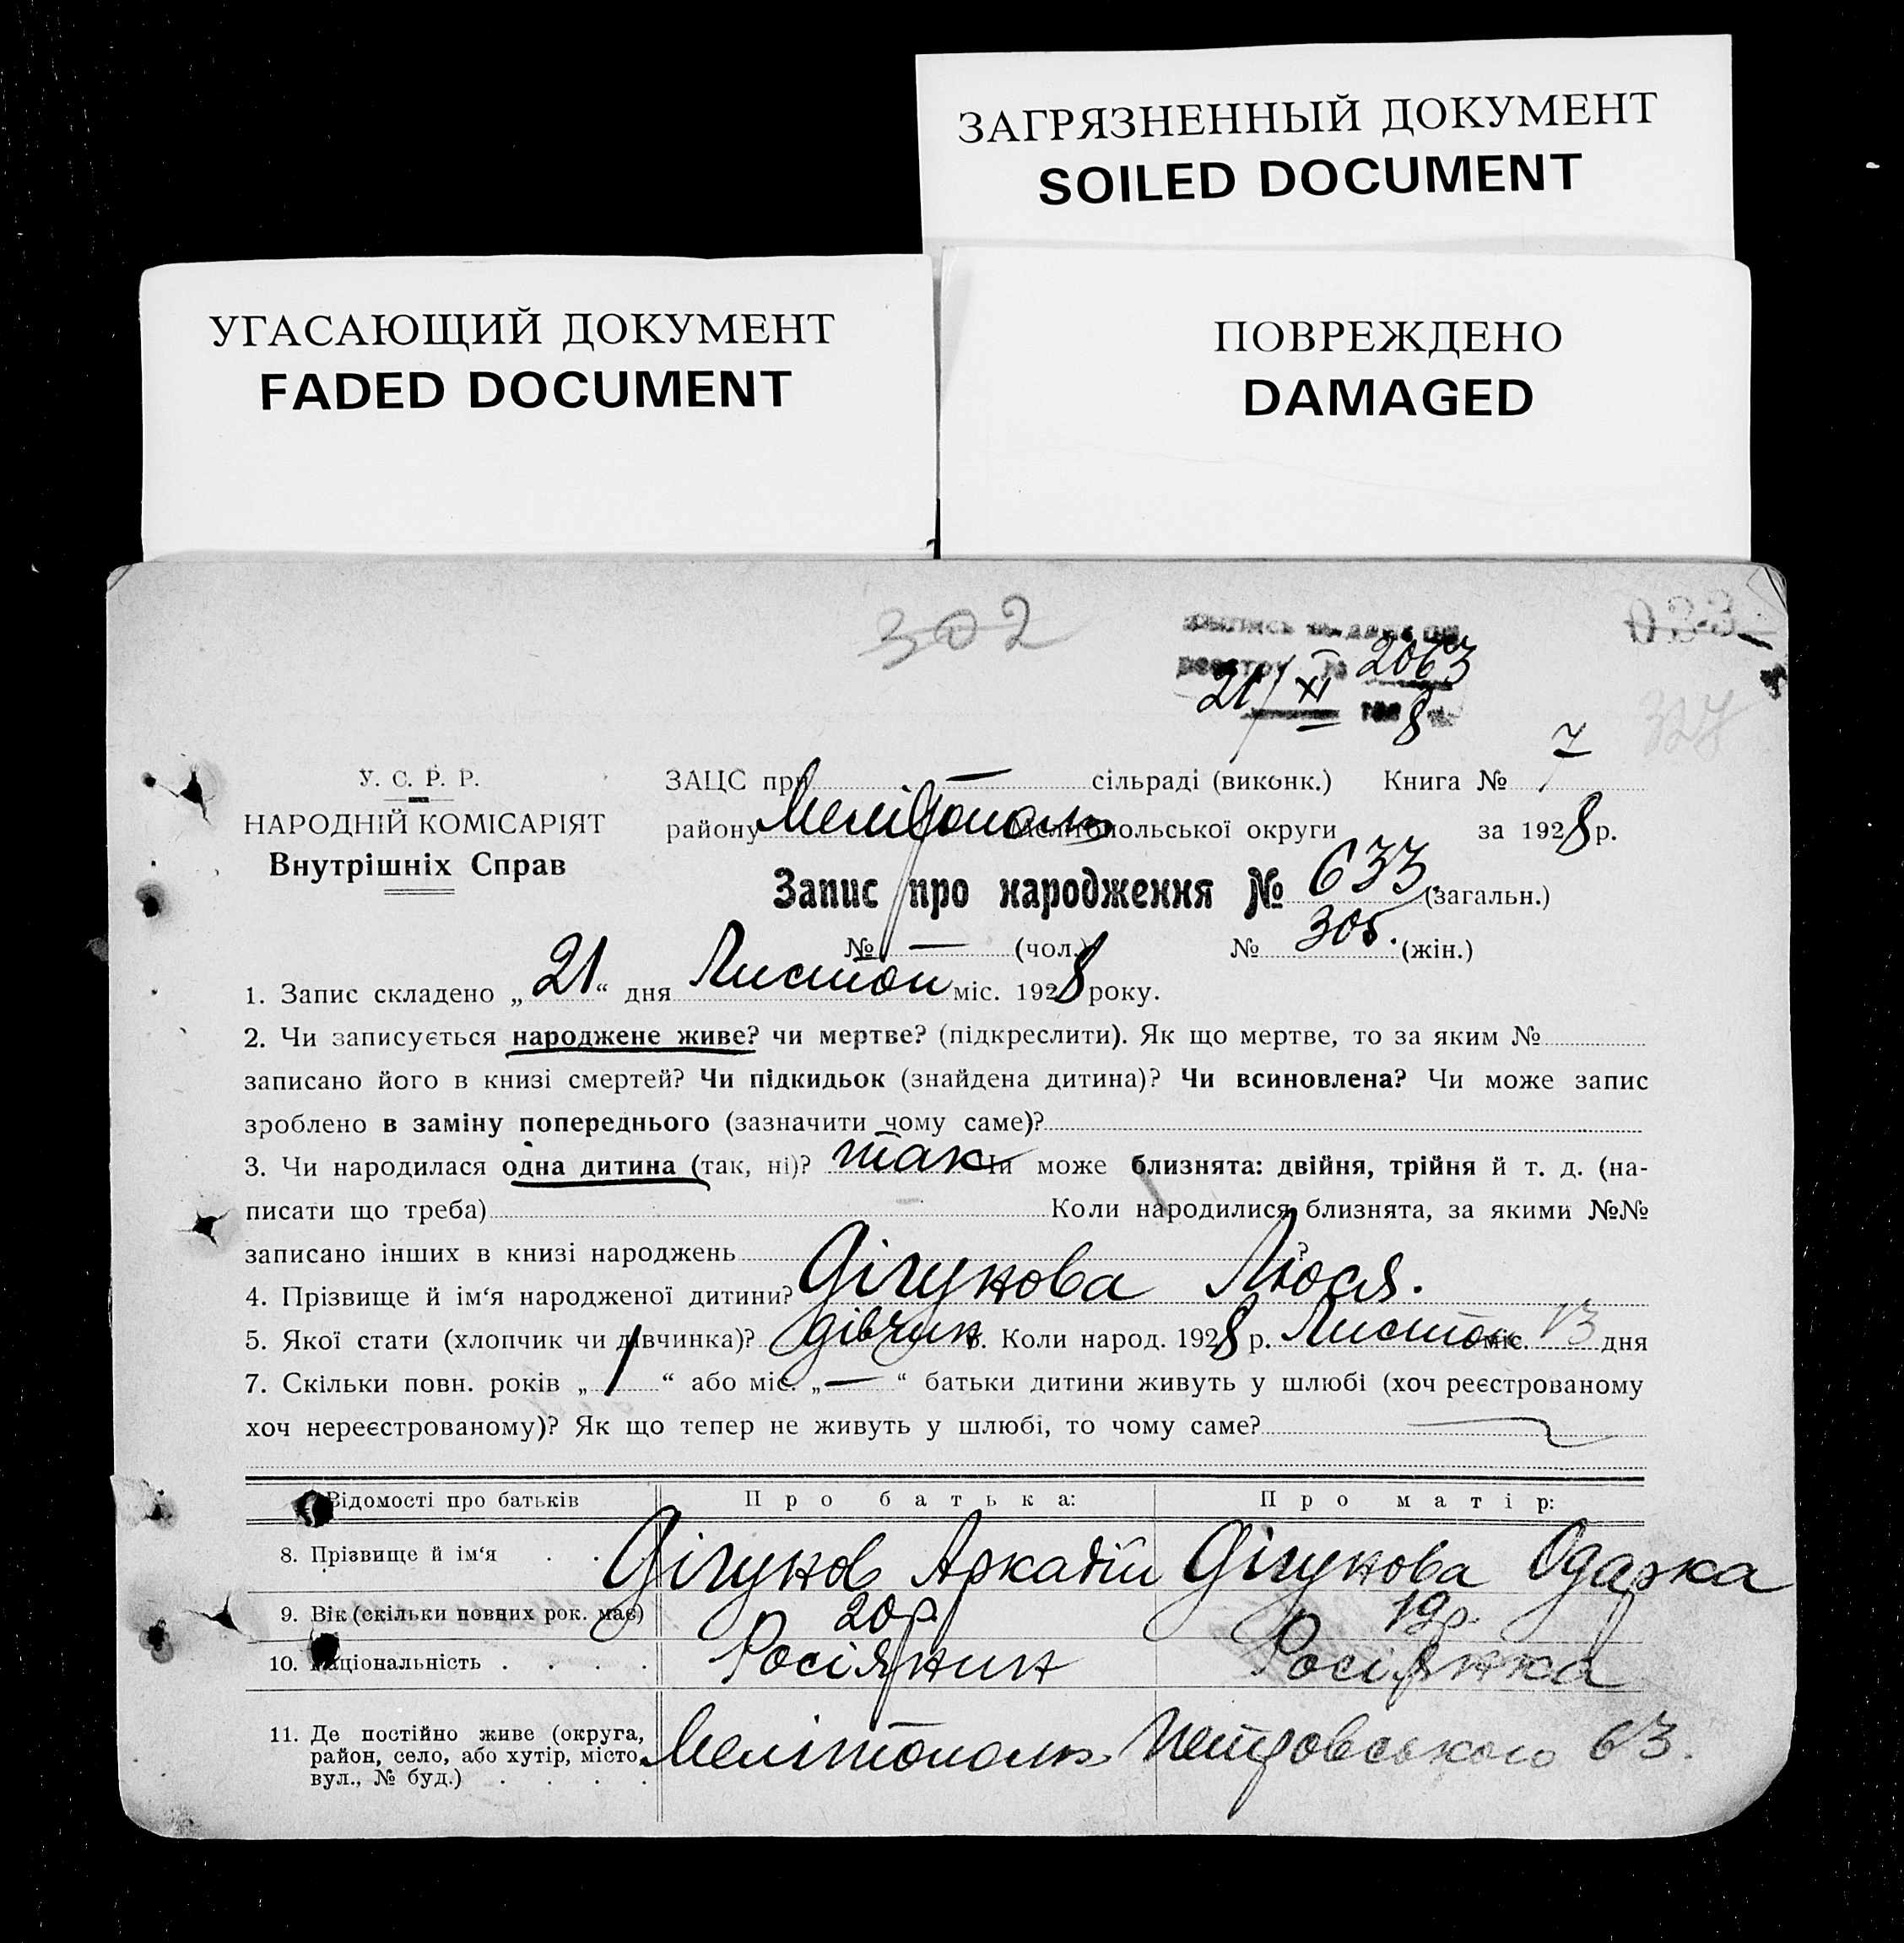 ЗАГРЯЗНЕННЫЙ ДОКУМЕНТ
SOILED DOCUMENT
УГАСАЮЩИЙ ДОКУМЕНТ
FADED DOCUMENT
ПОВРЕЖДЕНО
DAMAGED
302
033
2063
21/XI 8
327
У. С. Р. Р.
НАРОДНІЙ КОМІСАРІЯТ
Внутрішніх Справ
ЗАЦС при — сільраді (виконк.) Книга № 7
району Мелітополь Мелітопольської округи за 1928 р.
Запис про народження № 633 (загальн.)
№ — (чол.) № 305. (жін.)
1. Запис складено „21“ дня Листоп міс. 1928 року.
2. Чи записується народжене живе? чи мертве? (підкреслити). Як що мертве, то за яким №
записано його в книзі смертей? Чи підкидьок (знайдена дитина)? Чи всиновлена? Чи може запис
зроблено в заміну попереднього (зазначити чому саме)?
3. Чи народилася одна дитина (так, ні)? так Чи може близнята: двійня, трійня й т. д. (на-
писати що треба) Коли народилися близнята, за якими №№
записано інших в книзі народжень ?
4. Прізвище й ім‘я народженої дитини? Дігунова Люся.
5. Якої стати (хлопчик чи дівчинка)? дівчин 6. Коли народ. 1928 р. Листоп міс. 13 дня
7. Скільки повн. років „1“ або міс. „—“ батьки дитини живуть у шлюбі (хоч реєстрованому
хоч нереєстрованому)? Як що тепер не живуть у шлюбі, то чому саме?
Відомості про батьків Про батька: Про матір:
8. Прізвище й ім‘я . . Дігунов Аркадій Дігунова Одарка
9. Вік (скільки повних рок. має) 20 р. 19 р.
10. Національність . . . . Росіянин Росіянка
11. Де постійно живе (округа,
район, село, або хутір, місто,
вул., № буд.) . . . . Мелітополь Петровського 63.